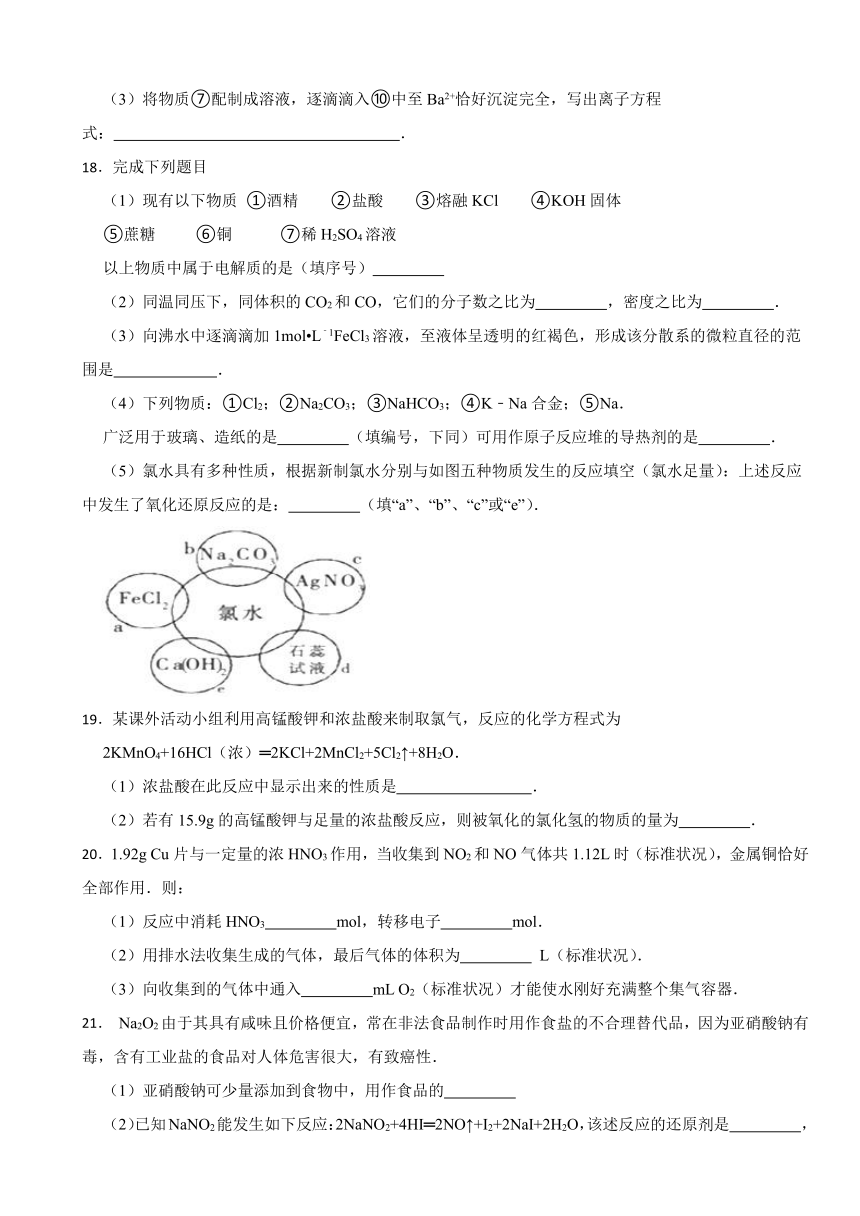 （3）将物质⑦配制成溶液，逐滴滴入⑩中至Ba²⁺恰好沉淀完全，写出离子方程
式：______．
18．完成下列题目
（1）现有以下物质 ①酒精 ②盐酸 ③熔融KCl ④KOH固体
⑤蔗糖 ⑥铜 ⑦稀H₂SO₄溶液
以上物质中属于电解质的是（填序号）______
（2）同温同压下，同体积的CO₂和CO，它们的分子数之比为______，密度之比为______．
（3）向沸水中逐滴滴加1mol•L⁻¹FeCl₃溶液，至液体呈透明的红褐色，形成该分散系的微粒直径的范
围是______．
（4）下列物质：①Cl₂；②Na₂CO₃；③NaHCO₃；④K﹣Na合金；⑤Na．
广泛用于玻璃、造纸的是______（填编号，下同）可用作原子反应堆的导热剂的是______．
（5）氯水具有多种性质，根据新制氯水分别与如图五种物质发生的反应填空（氯水足量）：上述反应
中发生了氧化还原反应的是：______（填“a”、“b”、“c”或“e”）．
b Na₂CO₃
c AgNO₃
FeCl₂ a
氯水
Ca(OH)₂ e
石蕊
试液 d
19．某课外活动小组利用高锰酸钾和浓盐酸来制取氯气，反应的化学方程式为
2KMnO₄+16HCl（浓）═2KCl+2MnCl₂+5Cl₂↑+8H₂O．
（1）浓盐酸在此反应中显示出来的性质是______．
（2）若有15.9g的高锰酸钾与足量的浓盐酸反应，则被氧化的氯化氢的物质的量为______．
20．1.92g Cu片与一定量的浓HNO₃作用，当收集到NO₂和NO气体共1.12L时（标准状况），金属铜恰好
全部作用．则：
（1）反应中消耗HNO₃______mol，转移电子______mol．
（2）用排水法收集生成的气体，最后气体的体积为______ L（标准状况）．
（3）向收集到的气体中通入______mL O₂（标准状况）才能使水刚好充满整个集气容器．
21． Na₂O₂由于其具有咸味且价格便宜，常在非法食品制作时用作食盐的不合理替代品，因为亚硝酸钠有
毒，含有工业盐的食品对人体危害很大，有致癌性．
（1）亚硝酸钠可少量添加到食物中，用作食品的______
（2）已知NaNO₂能发生如下反应：2NaNO₂+4HI═2NO↑+I₂+2NaI+2H₂O，该述反应的还原剂是______，